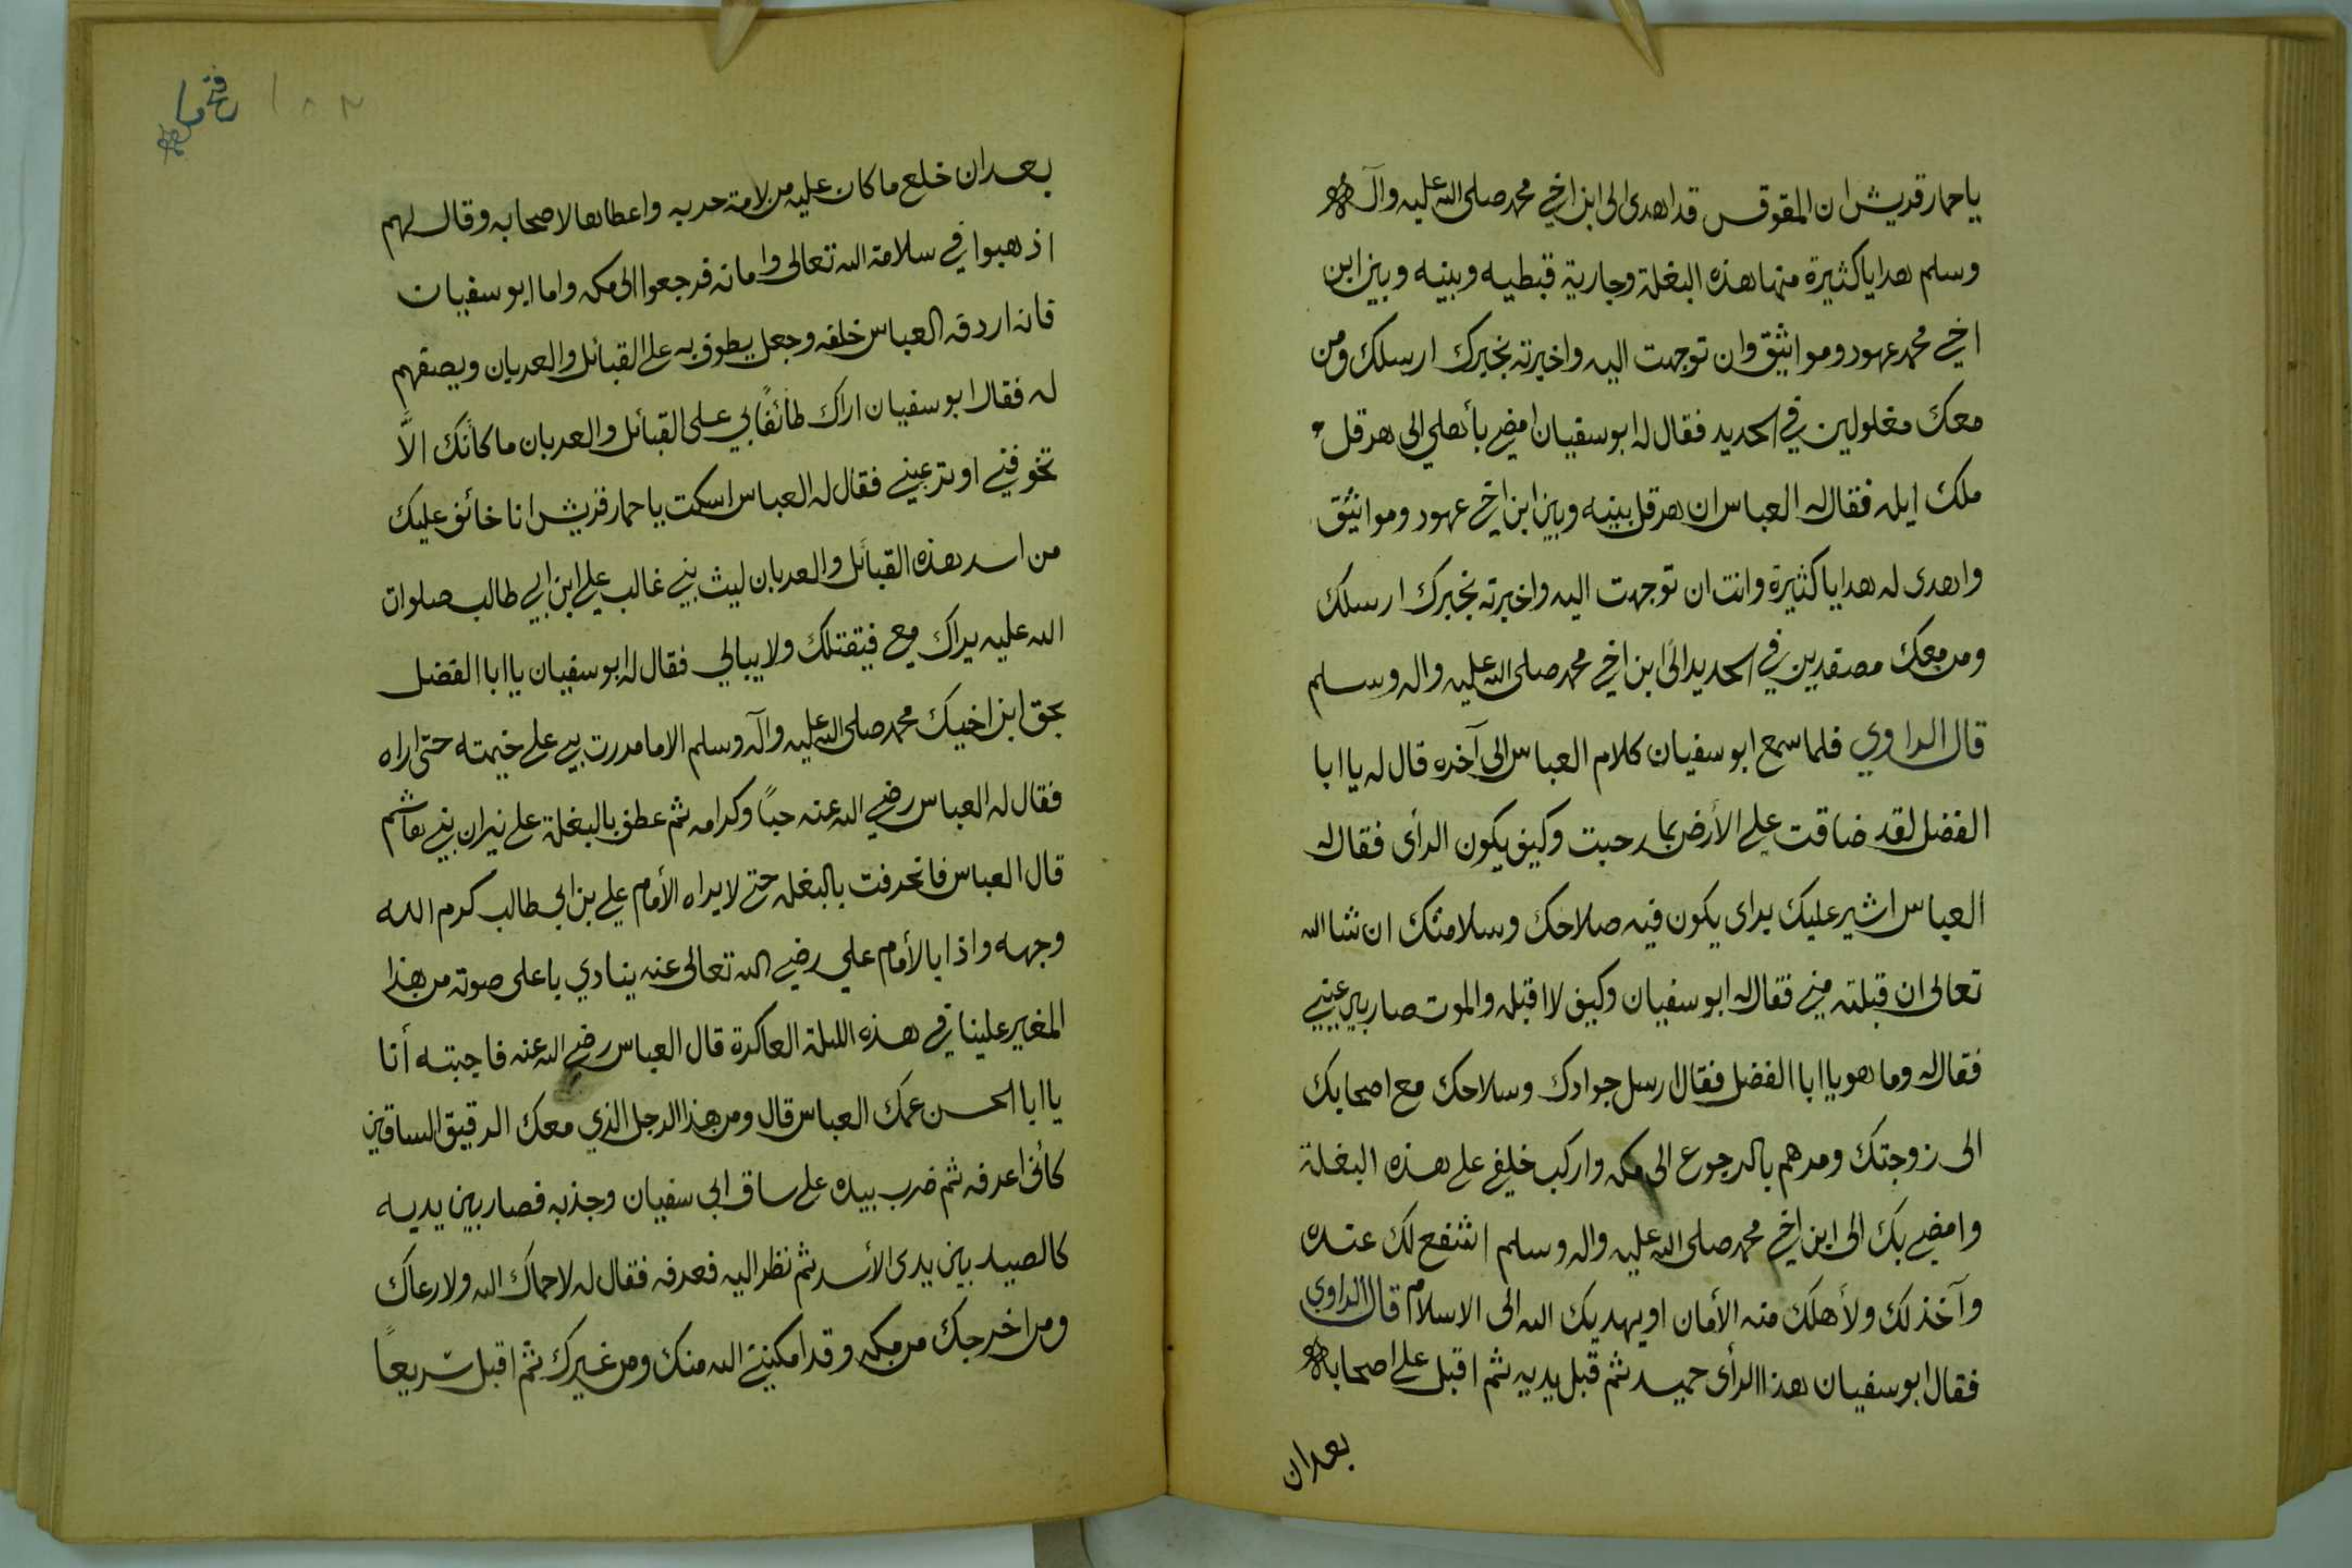 ياحمار قريش ان المقوقس قد اهدى الى ابن اخي محمد صلى الله عليه وآله
وسلم هدايا كثيرة منها هذه البغلة وجارية قبطيه وبينه وبين ابن
اخي محمد عهود ومواثيق وان توجهت اليه واخبرته بخبرك ارسلك ومن
معك مغلولين في الحديد فقال له ابو سفيان امضي بأهلي الى هرقل
ملك ايله فقال له العباس ان هرقل بينه وبين ابن اخي عهود ومواثيق
واهدى له هدايا كثيرة وانت ان توجهت اليه واخبرته بخبرك ارسلك
ومن معك مصفدين في الحديد الى ابن اخي محمد صلى الله عليه واله وسلم
قال الراوي فلما سمع ابو سفيان كلام العباس الى آخره قال له يا ابا
الفضل لقد ضاقت علي الأرض بما رحبت وكيف يكون الرأى فقال له
العباس اشير عليك براى يكون فيه صلاحك وسلامتك ان شا الله
تعالى ان قبلته مني فقال له ابو سفيان وكيف لا اقبله والموت صار بين عيني
فقال له وما هو يا ابا الفضل فقال ارسل جوادك وسلاحك مع اصحابك
الى زوجتك ومرهم بالرجوع الى مكه واركب خلفي على هذه البغلة
وامضي بك الى ابن اخي محمد صلى الله عليه واله وسلم اشفع لك عنده
وآخذ لك ولأهلك منه الأمان او يهديك الله الى الاسلام قال الراوي
فقال ابو سفيان هذا الرأى حميد ثم قبل يديه ثم اقبل على اصحابه
بعد ان
١٥٢
بعد ان خلع ما كان عليه من لامة حربه واعطاها لاصحابه وقال لهم
اذهبوا في سلامة الله تعالى وامانه فرجعوا الى مكه واما ابو سفيان
فانه اردفه العباس خلفه وجعل يطوف به على القبائل والعربان ويصفهم
له فقال ابو سفيان اراك طائفًا بي على القبائل والعربان ما كأنك الاَّ
تخوفني او ترعبني فقال له العباس اسكت يا حمار قريش انا خائف عليك
من اسد هذه القبائل والعربان ليث بني غالب علي ابن ابي طالب صلوات
الله عليه يراك معي فيقتلك ولا يبالي فقال له ابو سفيان يا ابا الفضل
بحق ابن اخيك محمد صلى الله عليه وآله وسلم الا ما مررت بي على خيمته حتى اراه
فقال له العباس رضي الله عنه حبًا وكرامه ثم عطف بالبغلة على نيران بني هاشم
قال العباس فانحرفت بالبغله حتى لا يراه الأمام علي بن ابي طالب كرم الله
وجهه واذا بالأمام علي رضي الله تعالى عنه ينادي باعلى صوته من هذا
المغير علينا في هذه الليلة العاكرة قال العباس رضي الله عنه فاجبته أنا
يا ابا الحسن عمك العباس قال ومن هذا الرجل الذي معك الرقيق الساقين
كأني اعرفه ثم ضرب بيده على ساق ابي سفيان وجذبه فصار بين يديه
كالصيد بين يدى الأسد ثم نظر اليه فعرفه فقال له لا حماك الله ولا رعاك
ومن اخرجك من مكه وقد امكنني الله منك ومن غيرك ثم اقبل سريعًا